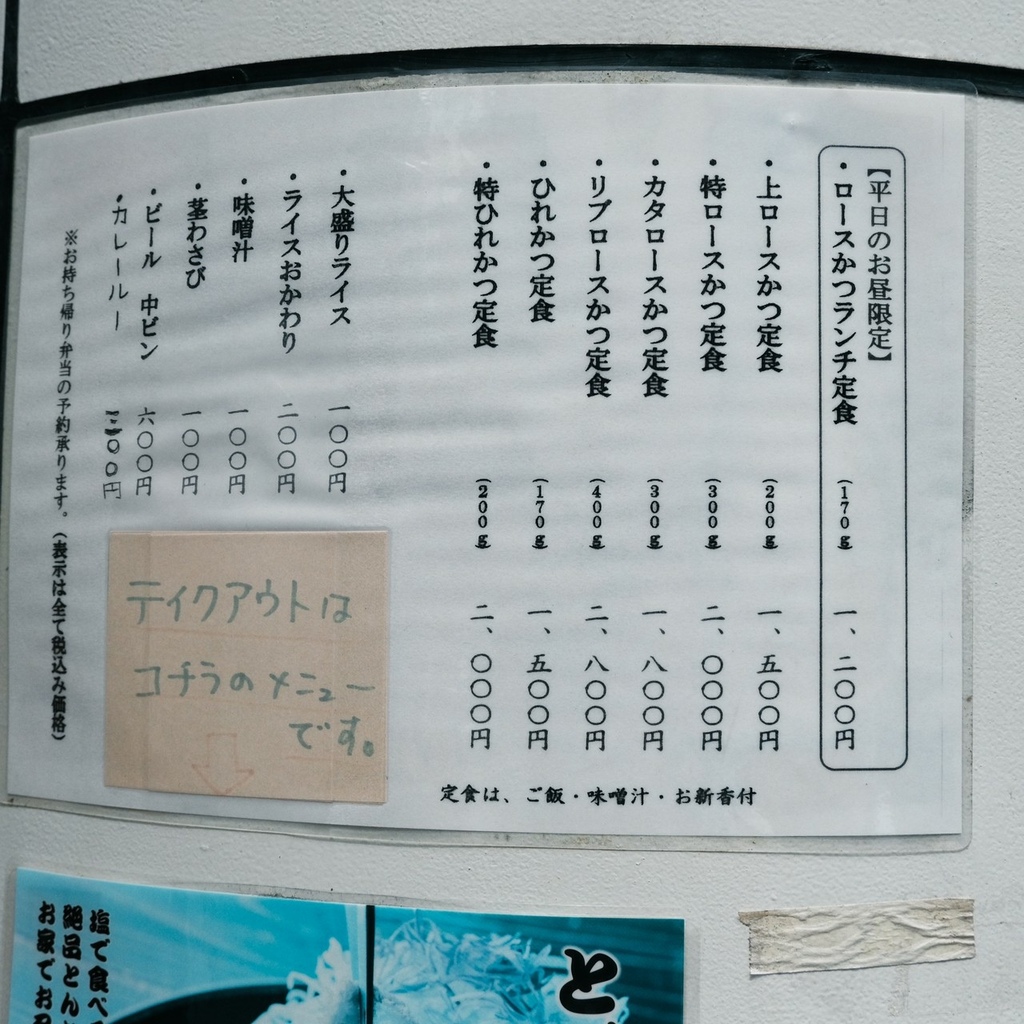 【平日のお昼限定】
・ロースかつランチ定食 (170g) 一、二〇〇円
・上ロースかつ定食 (200g) 一、五〇〇円
・特ロースかつ定食 (300g) 二、〇〇〇円
・カタロースかつ定食 (300g) 一、八〇〇円
・リブロースかつ定食 (400g) 二、八〇〇円
・ひれかつ定食 (170g) 一、五〇〇円
・特ひれかつ定食 (200g) 二、〇〇〇円
定食は、ご飯・味噌汁・お新香付
・大盛りライス 一〇〇円
・ライスおかわり 二〇〇円
・味噌汁 一〇〇円
・茎わさび 一〇〇円
・ビール 中ビン 六〇〇円
・カレールー 〇〇円
※お持ち帰り弁当の予約承ります。(表示は全て税込み価格)
テイクアウトは
コチラのメニュー
です。
と
塩で食べ
絶品とん
お家でお